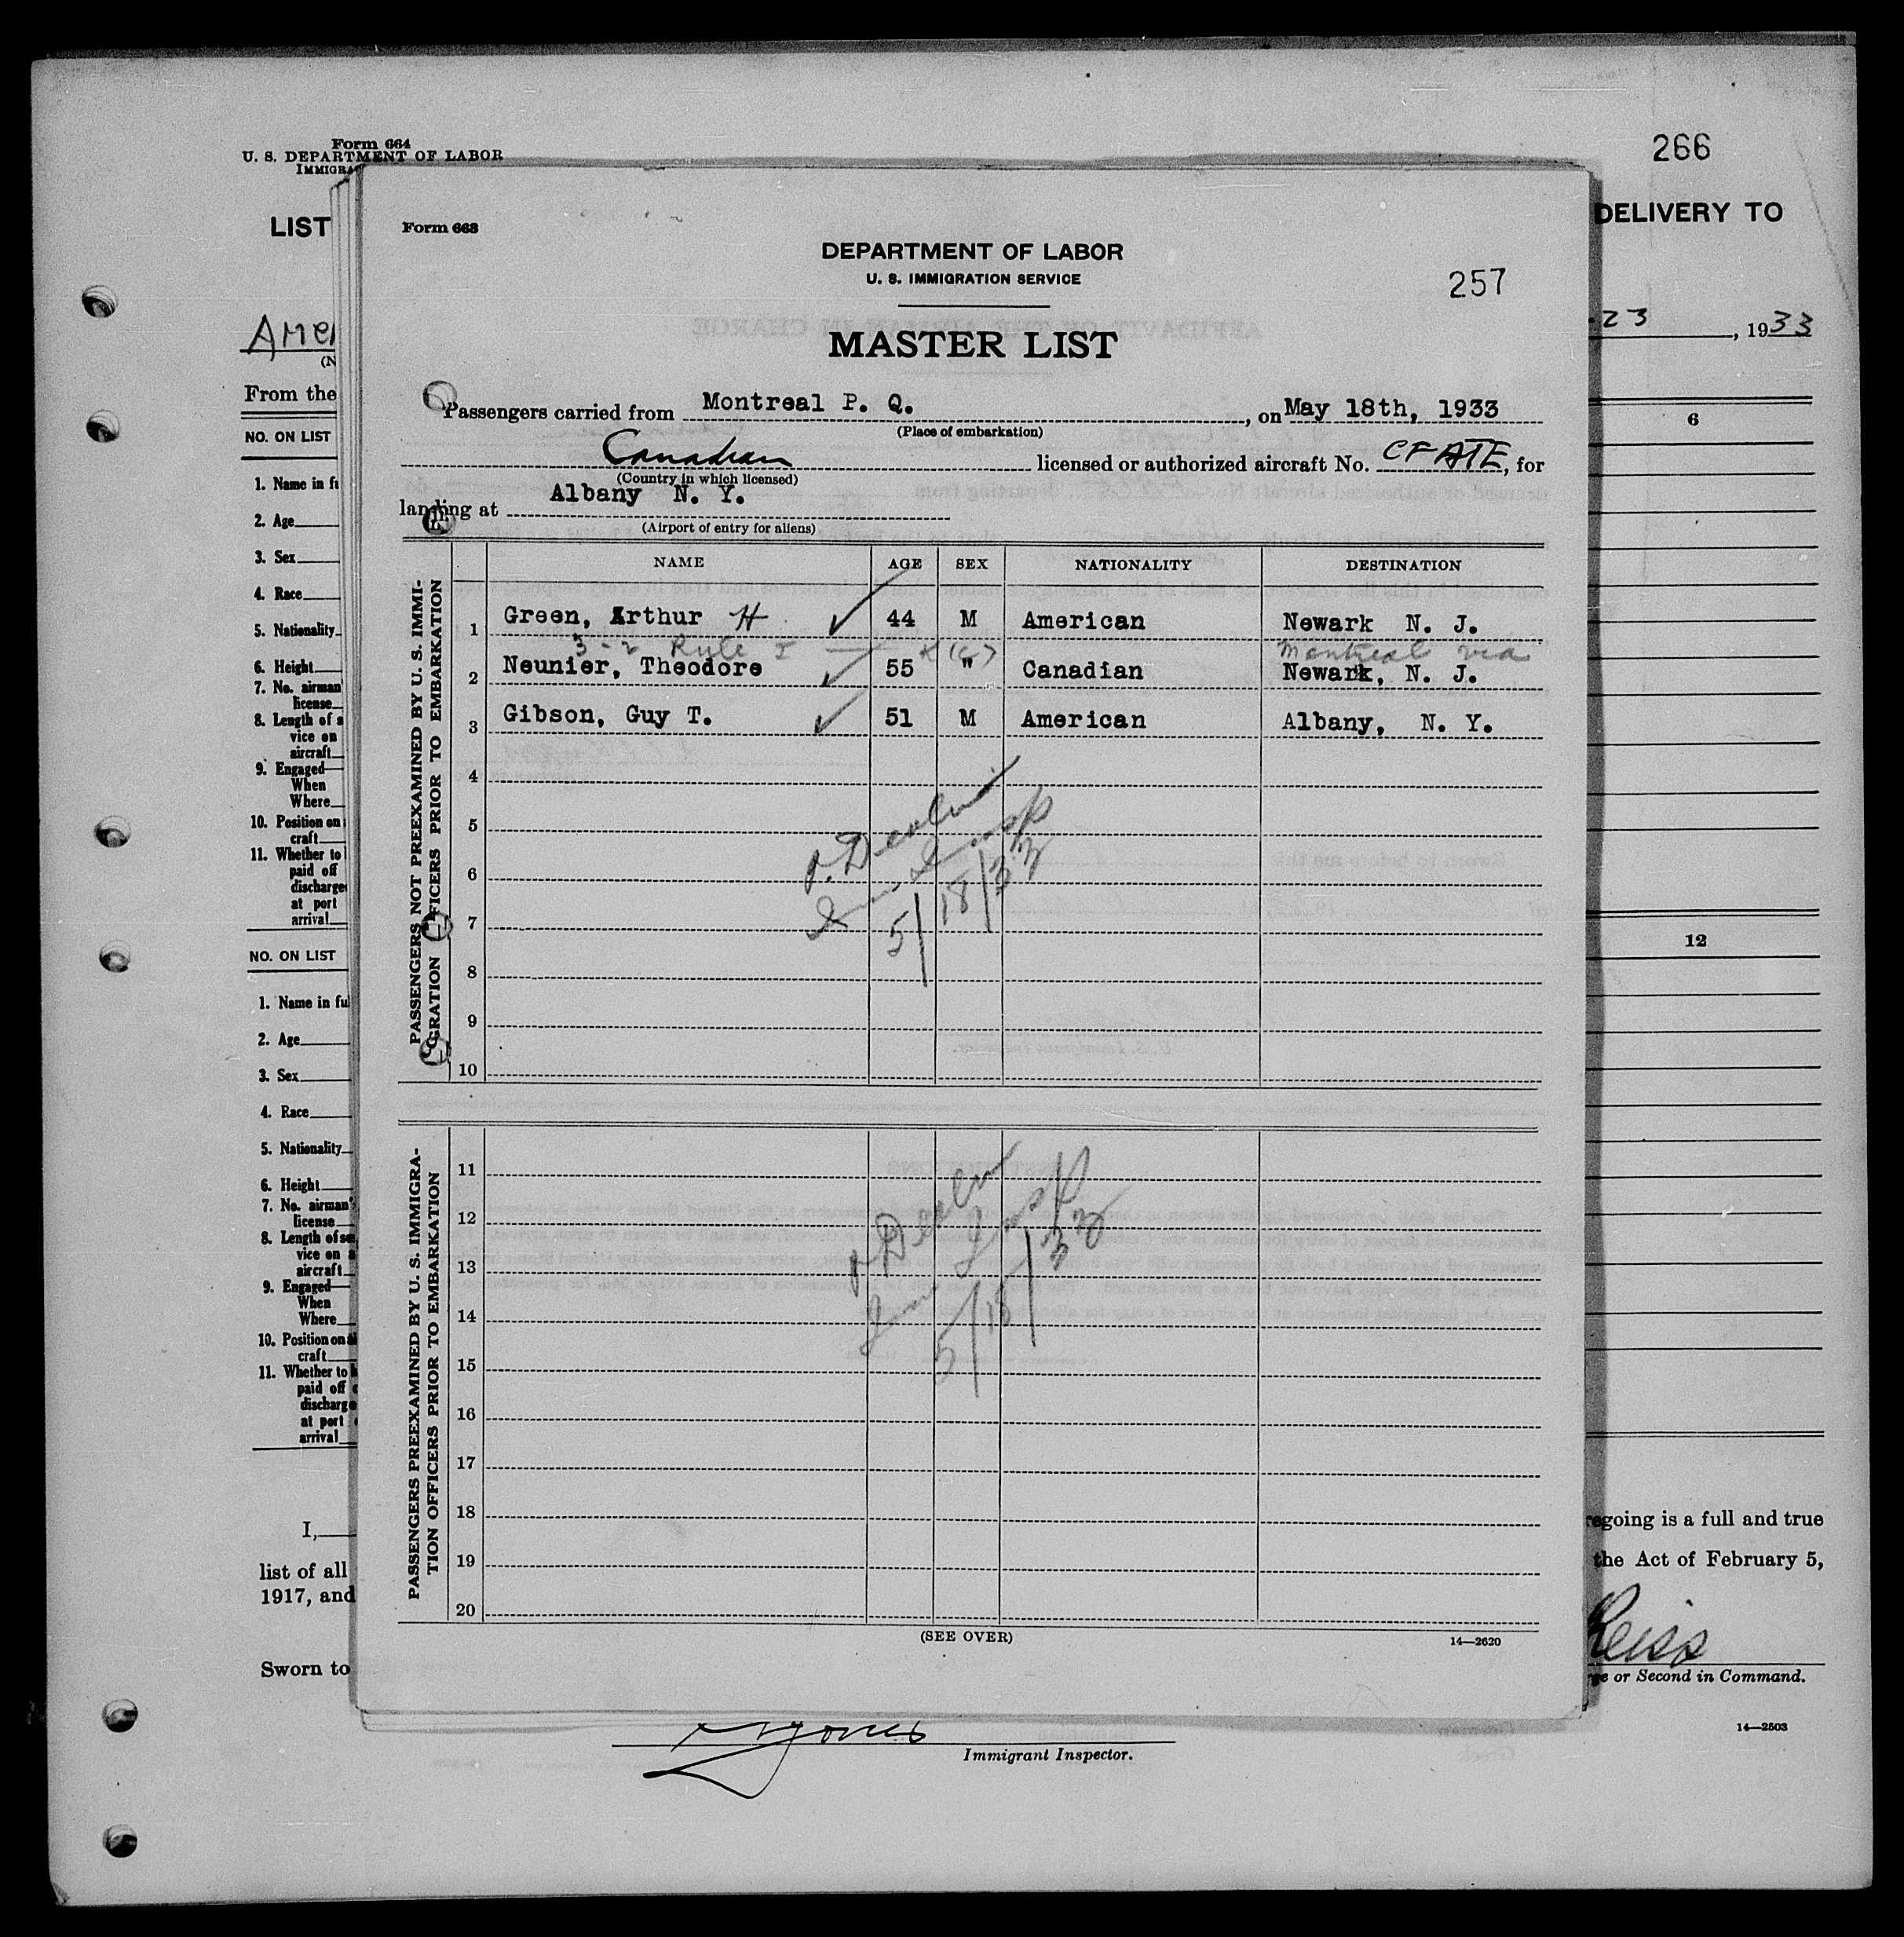 Form 664
U. S. DEPARTMENT OF LABOR
266
LIST
DELIVERY TO
23, 1933
From the
6
NO. ON LIST
1. Name in
2. Age
3. Sex
4. Race
5. Nationality
6. Height
7. No. airman
license
8. Length of
vice on
aircraft
9. Engaged
When
Where
10. Position on
craft
11. Whether to
paid off
discharge
at port
arrival
NO. ON LIST
12
1. Name in
2. Age
3. Sex
4. Race
5. Nationality
6. Height
7. No. airman's
license
8. Length of
vice on
aircraft
9. Engaged
When
Where
10. Position on
craft
11. Whether to
paid off
discharge
at port
arrival
I,
going is a full and true
list of all
the Act of February 5,
1917, and
Reiss
Sworn to
or Second in Command.
14—2503
Immigrant Inspector.
Form 663
DEPARTMENT OF LABOR
U. S. IMMIGRATION SERVICE
257
MASTER LIST
Passengers carried from Montreal P. Q., on May 18th, 1933
(Place of embarkation)
Canadian licensed or authorized aircraft No. CFATE, for
(Country in which licensed)
landing at Albany N. Y.
(Airport of entry for aliens)
PASSENGERS NOT PREEXAMINED BY U. S. IMMI-
GRATION OFFICERS PRIOR TO EMBARKATION
NAME AGE SEX NATIONALITY DESTINATION
1 Green, Arthur H 44 M American Newark N. J.
3-2 Rule I Montreal via
2 Neunier, Theodore 55 " Canadian Newark, N. J.
3 Gibson, Guy T. 51 M American Albany, N. Y.
4
5
6
7
8
9
10
Insp
5/18/33
PASSENGERS PREEXAMINED BY U. S. IMMIGRA-
TION OFFICERS PRIOR TO EMBARKATION
11
12
13
14
15
16
17
18
19
20
Insp
5/18/33
(SEE OVER)
14—2620